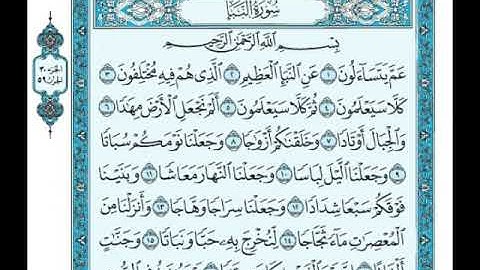 سُورَةُ النَّبَإِ
بِسْمِ اللَّهِ الرَّحْمَٰنِ الرَّحِيمِ
عَمَّ يَتَسَآءَلُونَ ١ عَنِ النَّبَإِ الْعَظِيمِ ٢ الَّذِى هُمْ فِيهِ مُخْتَلِفُونَ ٣
كَلَّا سَيَعْلَمُونَ ٤ ثُمَّ كَلَّا سَيَعْلَمُونَ ٥ أَلَمْ نَجْعَلِ الْأَرْضَ مِهَٰدًا ٦
وَالْجِبَالَ أَوْتَادًا ٧ وَخَلَقْنَٰكُمْ أَزْوَٰجًا ٨ وَجَعَلْنَا نَوْمَكُمْ سُبَاتًا
٩ وَجَعَلْنَا الَّيْلَ لِبَاسًا ١٠ وَجَعَلْنَا النَّهَارَ مَعَاشًا ١١ وَبَنَيْنَا
فَوْقَكُمْ سَبْعًا شِدَادًا ١٢ وَجَعَلْنَا سِرَاجًا وَهَّاجًا ١٣ وَأَنزَلْنَا مِنَ
الْمُعْصِرَٰتِ مَآءً ثَجَّاجًا ١٤ لِّنُخْرِجَ بِهِۦ حَبًّا وَنَبَاتًا ١٥ وَجَنَّٰتٍ
الجزء ٣٠